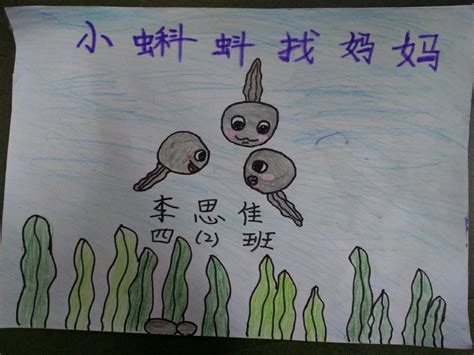 小蝌蚪找妈妈
李思佳
四(2)班